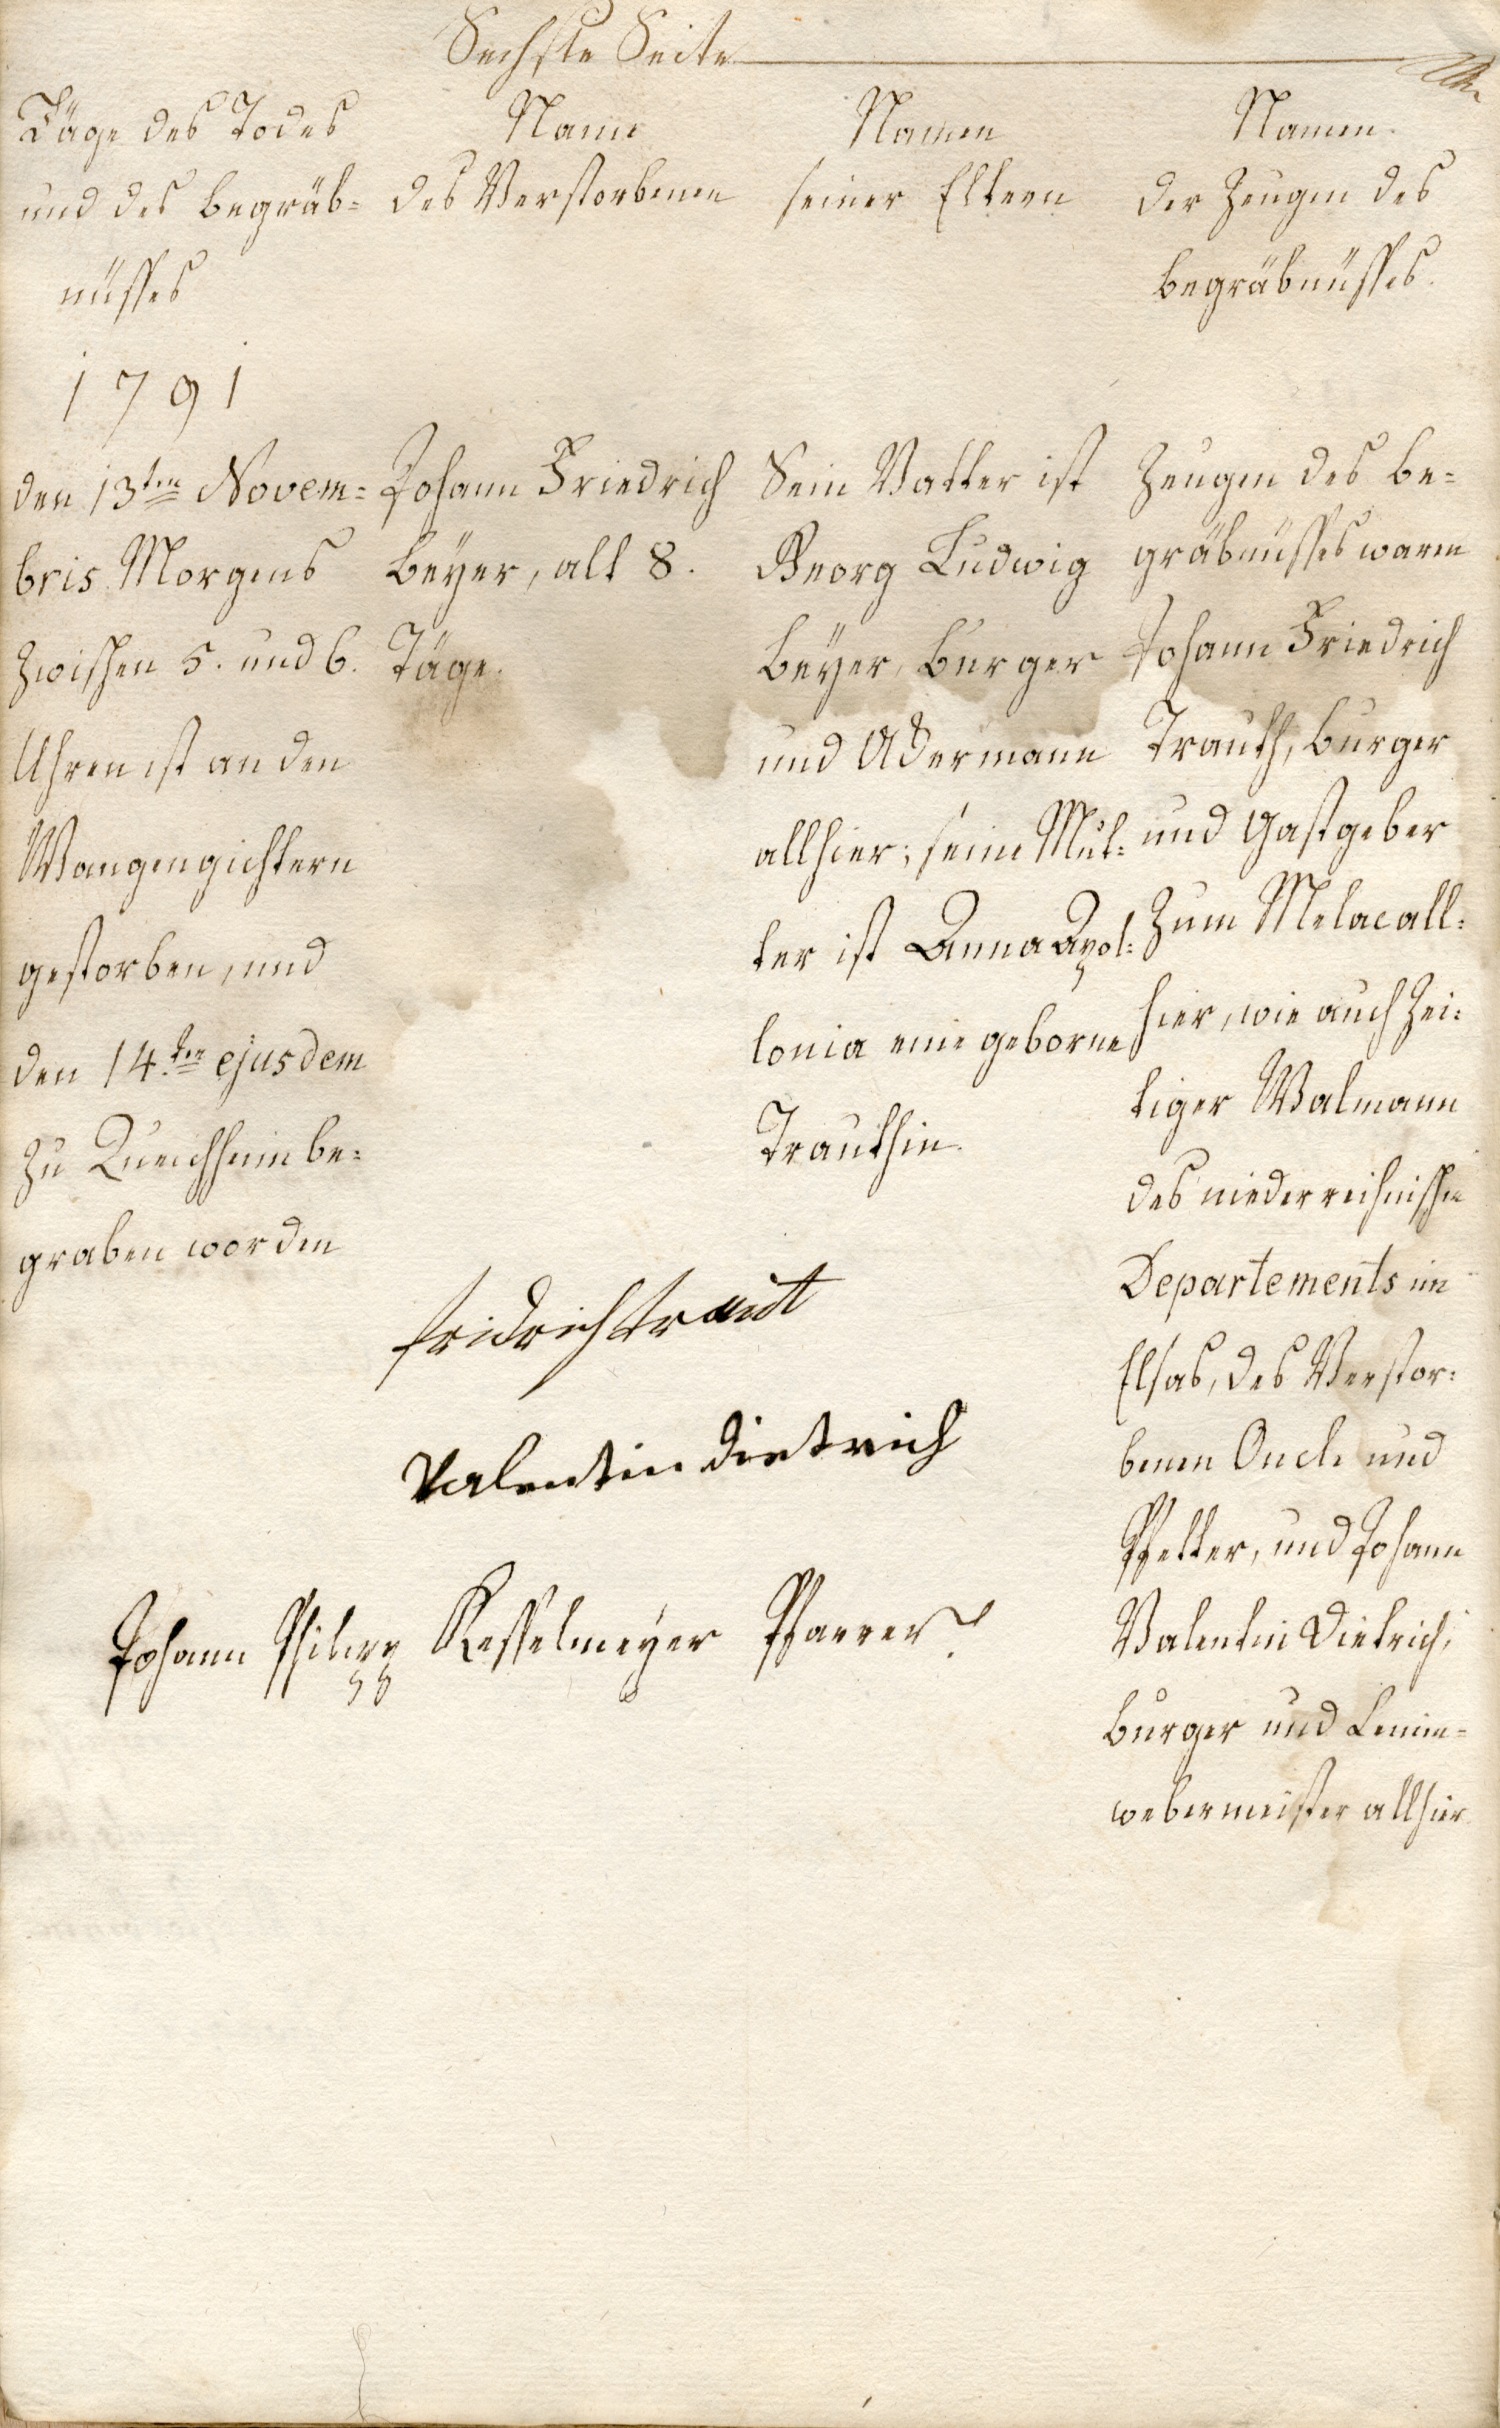 Sechste Seite
Täge des Todes
und des begräb=
nüsses
Name
des Verstorbenen
Namen
seiner Eltern
Namen
der Zeugen des
begräbnüsses.
1791
den 13ten Novem=
bris Morgens
zwischen 5. und 6.
Uhren ist an den
Wangengichtern
gestorben, und
den 14.ten ejusdem
zu Queichheim be=
graben worden
Johann Friedrich
beÿer, alt 8.
Täge.
Sein Vatter ist
Georg Ludwig
beÿer, burger
und Ackermann
allhier; seine Mut=
ter ist Anna Apol=
lonia eine geborne
Trauthin.
Zeugen des be=
gräbnüsses waren
Johann Friedrich
Trauth, burger
und Gastgeber
zum Melac all=
hier, wie auch Zei=
tiger Walmann
des niederreihnischen
Departements im
Elsas, des Verstor=
benen Oncle und
Pfetter, und Johann
Valentin Dietrich,
burger und Leinen=
webermeister allhier
fridrich traut
Valentin dietrich
Johann Philipp Kesselmeÿer Pfarrer.